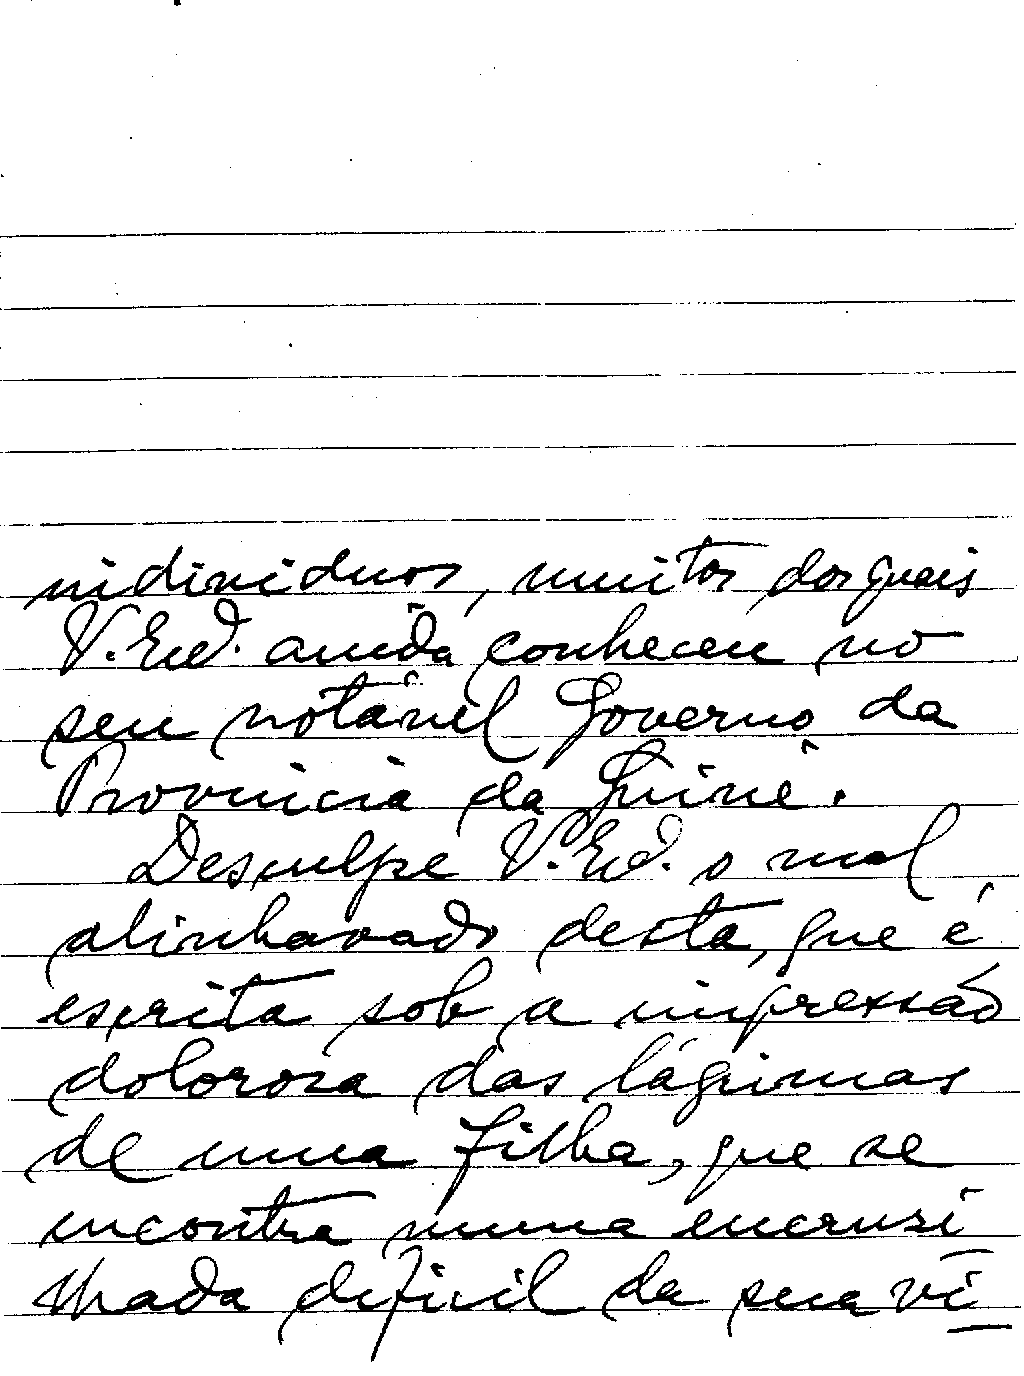 individuos, muitos dos quais
V. Exª. ainda conheceu no
seu notável Governo da
Provincia da Guiné.
Desculpe V. Exª. o mal
alinhavado desta, que é
escrita sob a impressão
dolorosa das lágrimas
de uma filha, que se
encontra numa encrusi
lhada dificil da sua vi